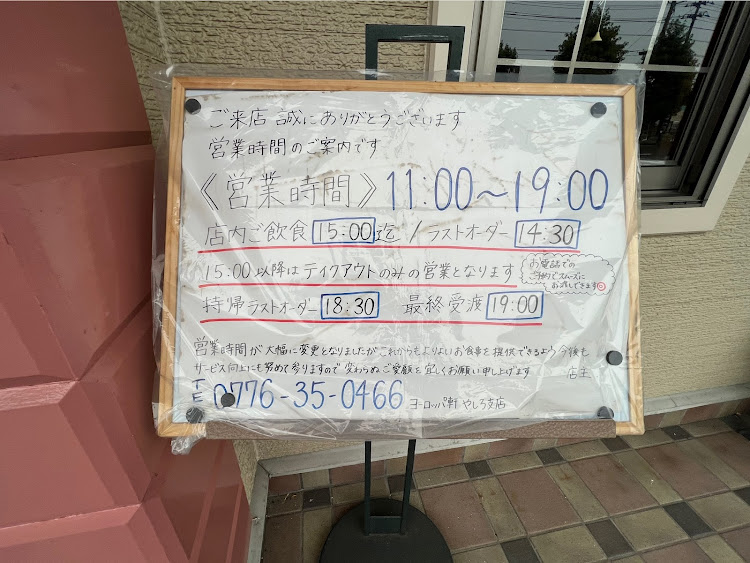 ご来店 誠にありがとうございます
営業時間のご案内です
《営業時間》11:00～19:00
店内ご飲食 15:00迄 / ラストオーダー 14:30
15:00以降はテイクアウトのみの営業となります
お電話での
ご予約でスムーズに
お渡しできます
持帰ラストオーダー 18:30 最終受渡 19:00
営業時間が大幅に変更となりましたがこれからもよりよいお食事を提供できるよう今後も
サービス向上にも努めて参りますので変わらぬご愛顧を宜しくお願い申し上げます 店主
TEL 0776-35-0466 ヨーロッパ軒 やしろ支店